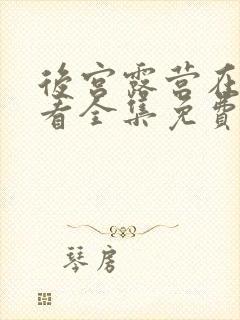 後宮露营在
看全集免費
琴房